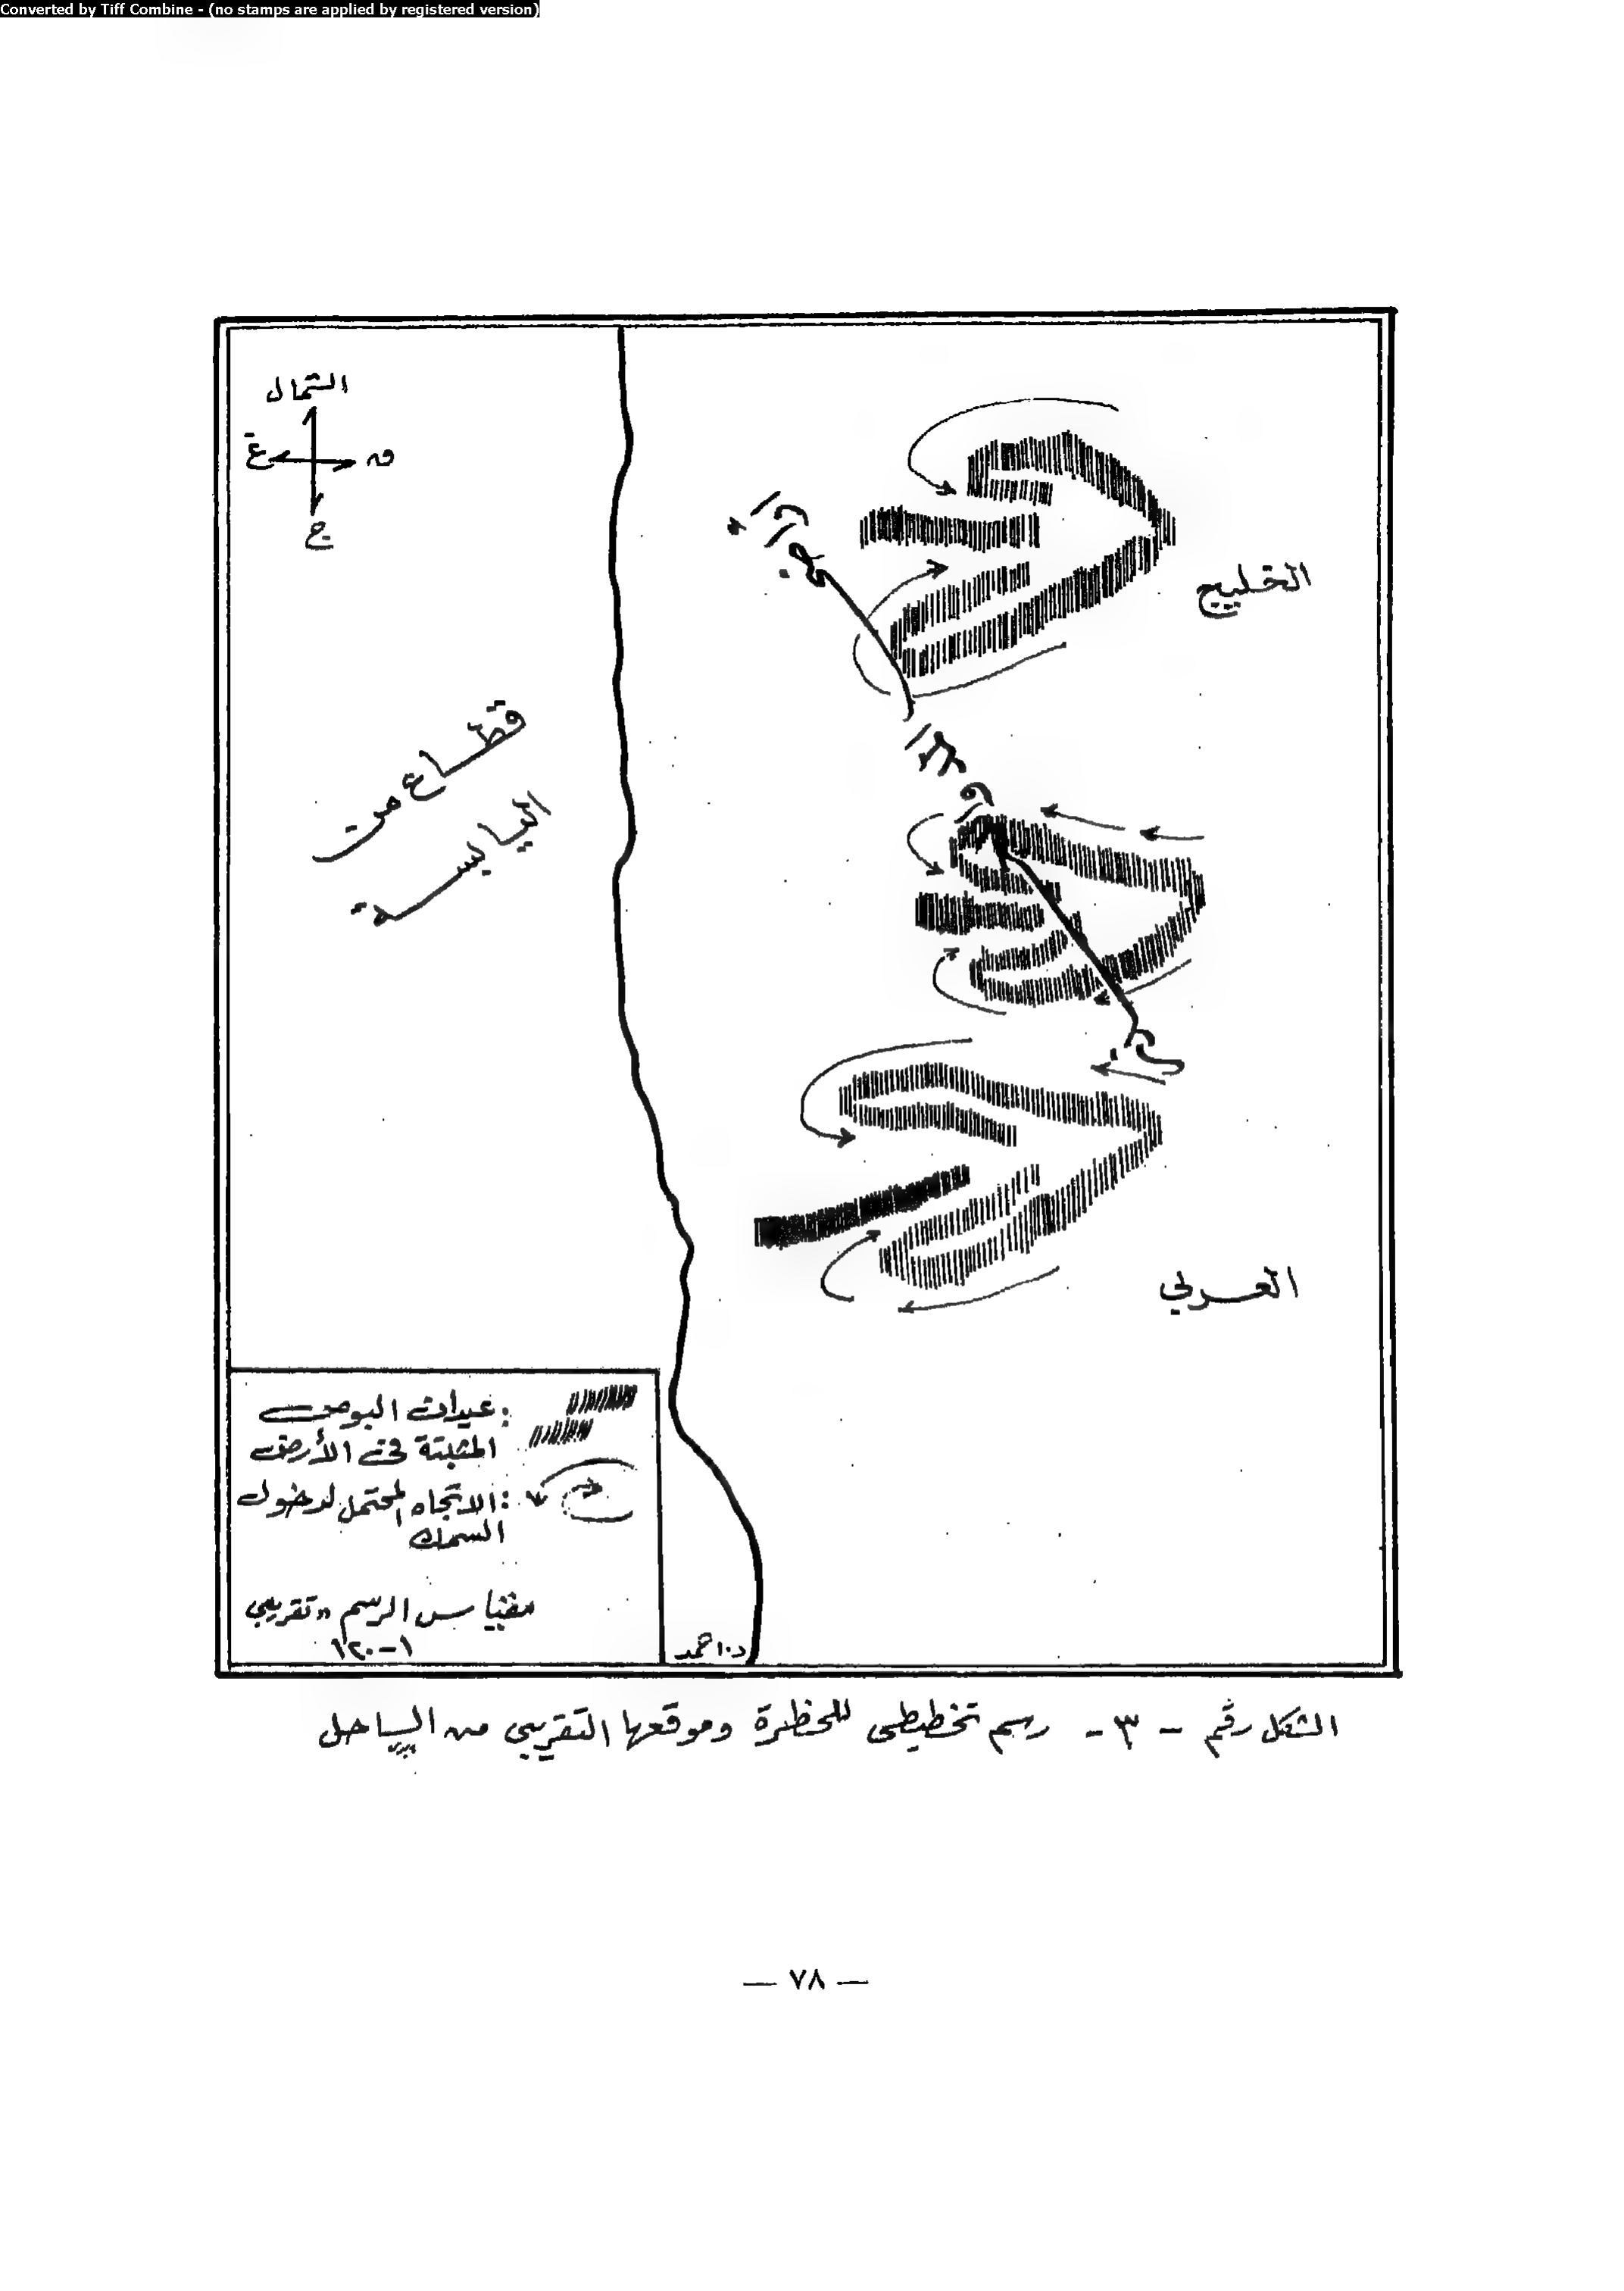 Converted by Tiff Combine - (no stamps are applied by registered version)
الشمال
غ
ج
الخليج
قطاع من
اليابسة
العربي
: عيدان البوص
المثبتة في الأرض
: الاتجاه المحتمل لدخول
السمك
مقياس الرسم «تقريبي
١-١٢٠
د. احمد
الشكل رقم - ٣ - رسم تخطيطي للحظرة وموقعها التقريبي من الساحل
— ٧٨ —